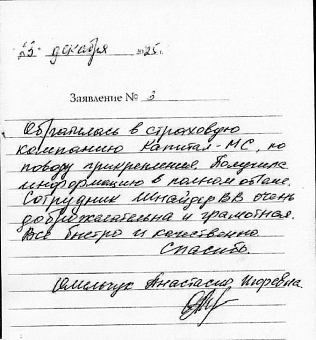 23 декабря 2025г.
Заявление № 3
Обратилась в страховую
компанию Капитал-МС, по
поводу прикрепления Получила
информацию в полном объеме.
Сотрудник Шнайдер ВВ очень
доброжелательна и грамотная.
Всё быстро и качественно
Спасибо.
Омельчук Анастасия Игоревна